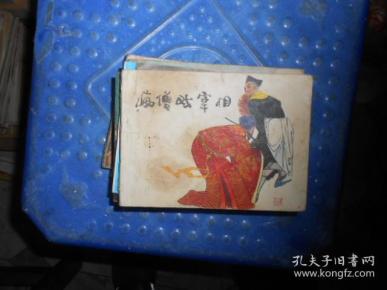 疯僧戏宰相
孔夫子旧书网
www.kongfz.com